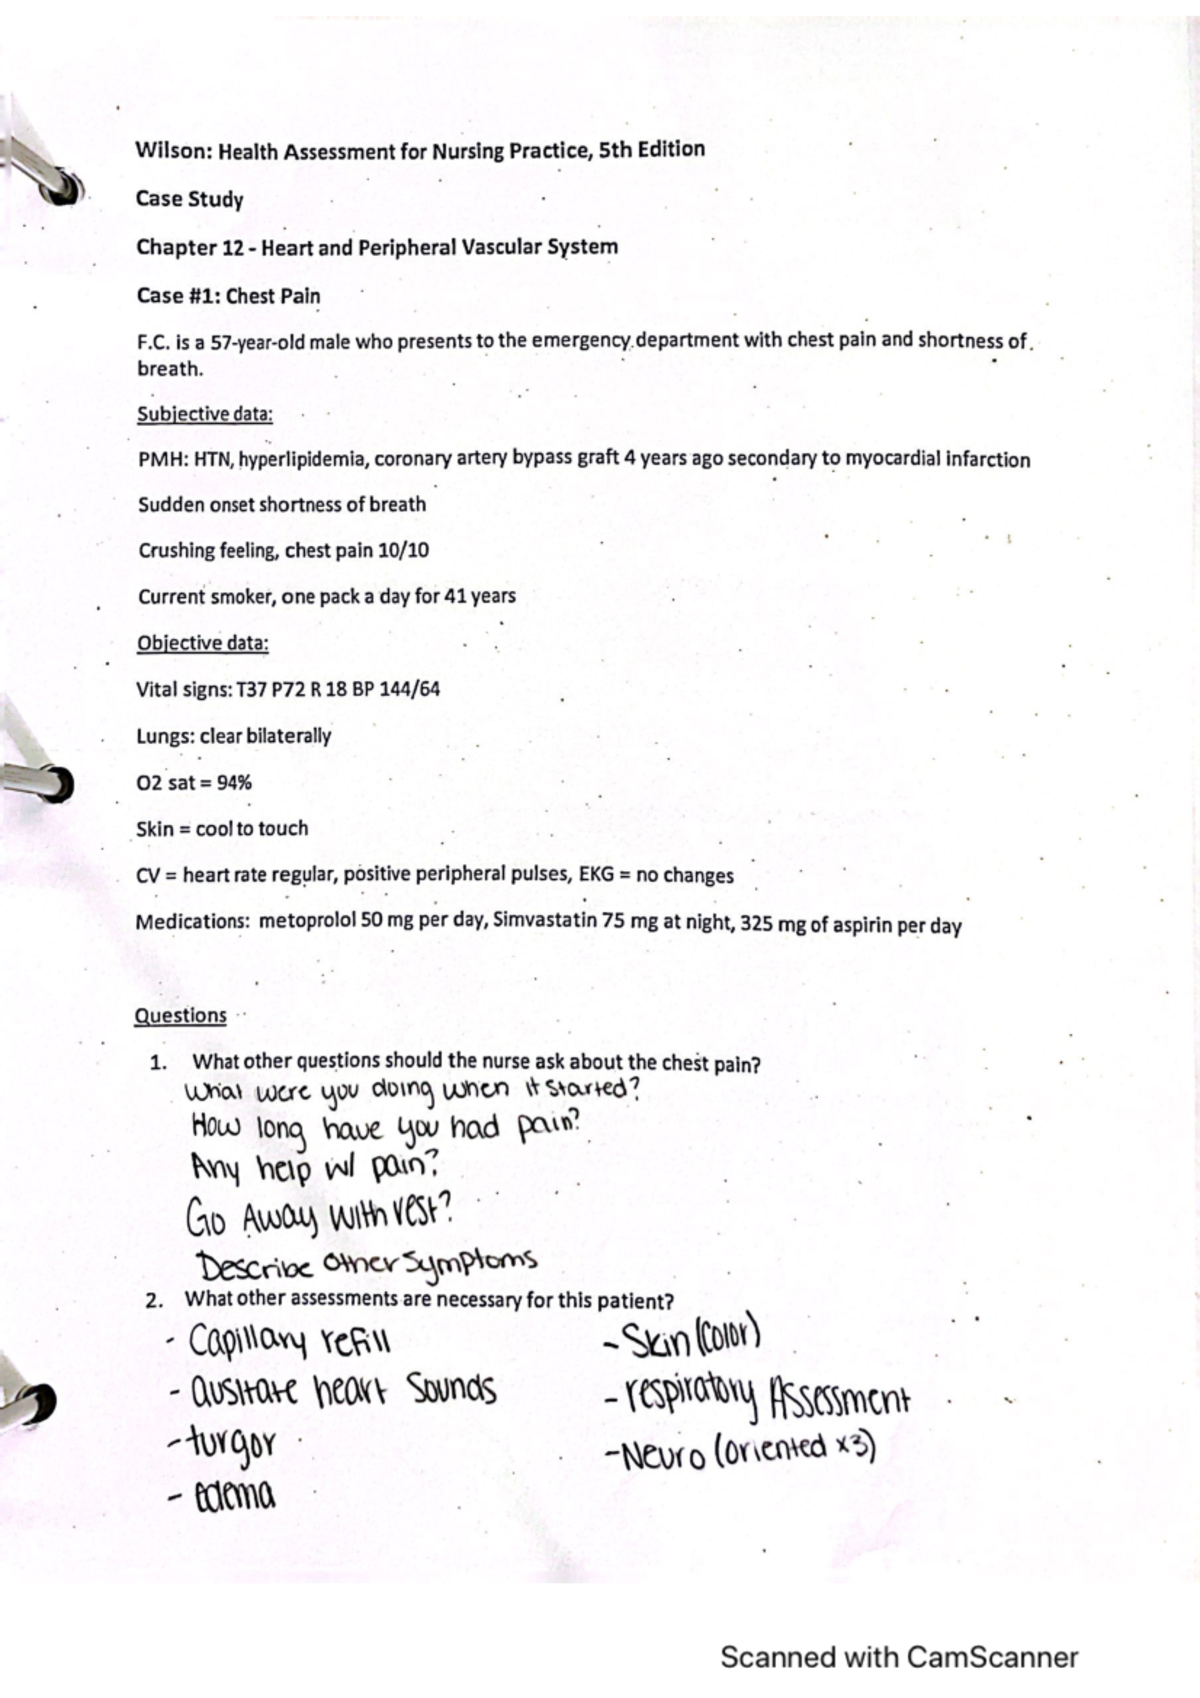 Wilson: Health Assessment for Nursing Practice, 5th Edition
Case Study
Chapter 12 - Heart and Peripheral Vascular System
Case #1: Chest Pain
F.C. is a 57-year-old male who presents to the emergency department with chest pain and shortness of
breath.
Subjective data:
PMH: HTN, hyperlipidemia, coronary artery bypass graft 4 years ago secondary to myocardial infarction
Sudden onset shortness of breath
Crushing feeling, chest pain 10/10
Current smoker, one pack a day for 41 years
Objective data:
Vital signs: T37 P72 R 18 BP 144/64
Lungs: clear bilaterally
O2 sat = 94%
Skin = cool to touch
CV = heart rate regular, positive peripheral pulses, EKG = no changes
Medications: metoprolol 50 mg per day, Simvastatin 75 mg at night, 325 mg of aspirin per day
Questions
1. What other questions should the nurse ask about the chest pain?
What were you doing when it started?
How long have you had pain?
Any help w/ pain?
Go Away with rest?
Describe other symptoms
2. What other assessments are necessary for this patient?
- Capillary refill
- ausltate heart sounds
- turgor
- edema
- Skin (color)
- respiratory Assessment
- Neuro (oriented x3)
Scanned with CamScanner